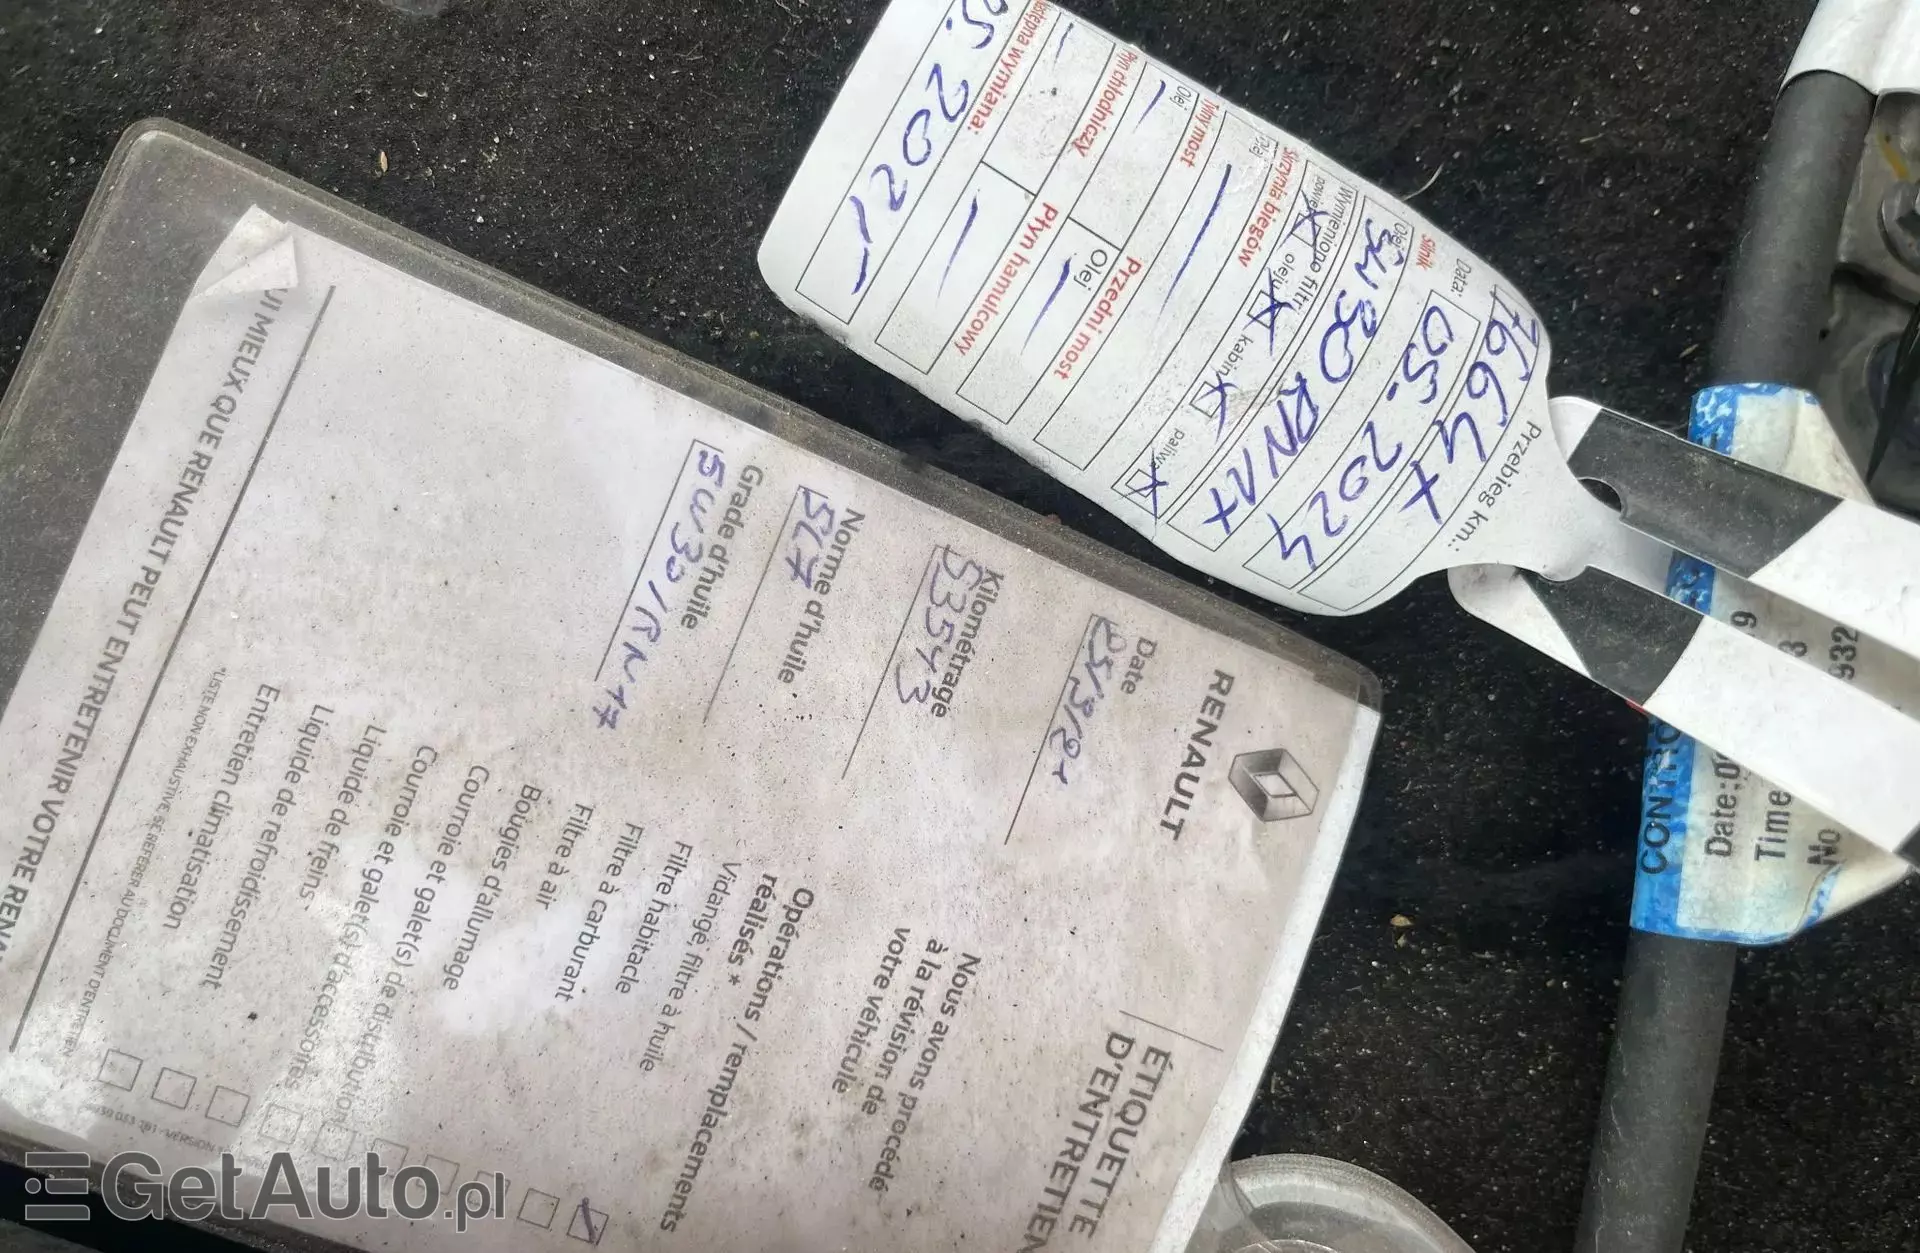 RENAULT
ÉTIQUETTE
D'ENTRETIEN
Date
Kilométrage
53543
Norme d'huile
5W30 / RN17
Grade d'huile
Nous avons procédé
à la révision de
votre véhicule
Opérations / remplacements
réalisés *
Vidange, filtre à huile
Filtre habitacle
Filtre à carburant
Filtre à air
Bougies d'allumage
Courroie et galet(s) de distribution
Courroie et galet(s) d'accessoires
Liquide de freins
Liquide de refroidissement
Entretien climatisation
*LISTE NON EXHAUSTIVE, SE REFERER AU DOCUMENT D'ENTRETIEN
UI MIEUX QUE RENAULT PEUT ENTRETENIR VOTRE RENA
Przebieg km.:
7664
Data:
05. 2024
Silnik
Olej
5W30 RN17
Wymieniono filtr
powie
oleju
kabin
paliwa
Skrzynia biegów
Olej
Tylny most
Olej
Przedni most
Olej
Płyn chłodniczy
Płyn hamulcowy
Następna wymiana:
05. 2025
CONTRO
Date:0
Time
No
9
3
932
GetAuto.pl